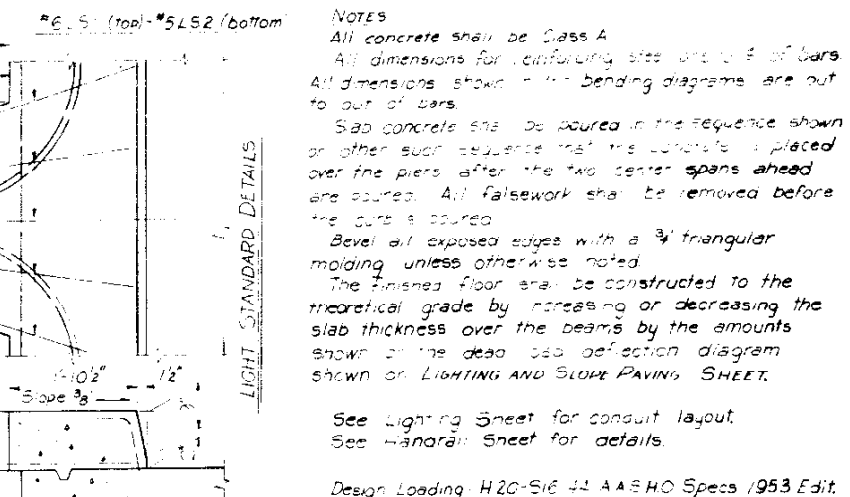 (top) - #5LS2 (bottom
NOTES
All concrete shall be Class A
All dimensions for reinforcing steel are to ¢ of bars.
All dimensions shown in the bending diagrams are out
to out of bars.
Slab concrete shall be poured in the sequence shown
or other such sequence that the concrete is placed
over the piers after the two center spans ahead
are poured. All falsework shall be removed before
the curb is poured
Bevel all exposed edges with a 3/4" triangular
molding unless otherwise noted.
The finished floor shall be constructed to the
theoretical grade by increasing or decreasing the
slab thickness over the beams by the amounts
shown on the dead load deflection diagram
shown on LIGHTING AND SLOPE PAVING SHEET.
See Lighting Sheet for conduit layout.
See Handrail Sheet for details.
Design Loading: H20-S16-44 AASHO Specs 1953 Edit.
LIGHT STANDARD DETAILS
1'-10½" 1½"
Slope 3/8"